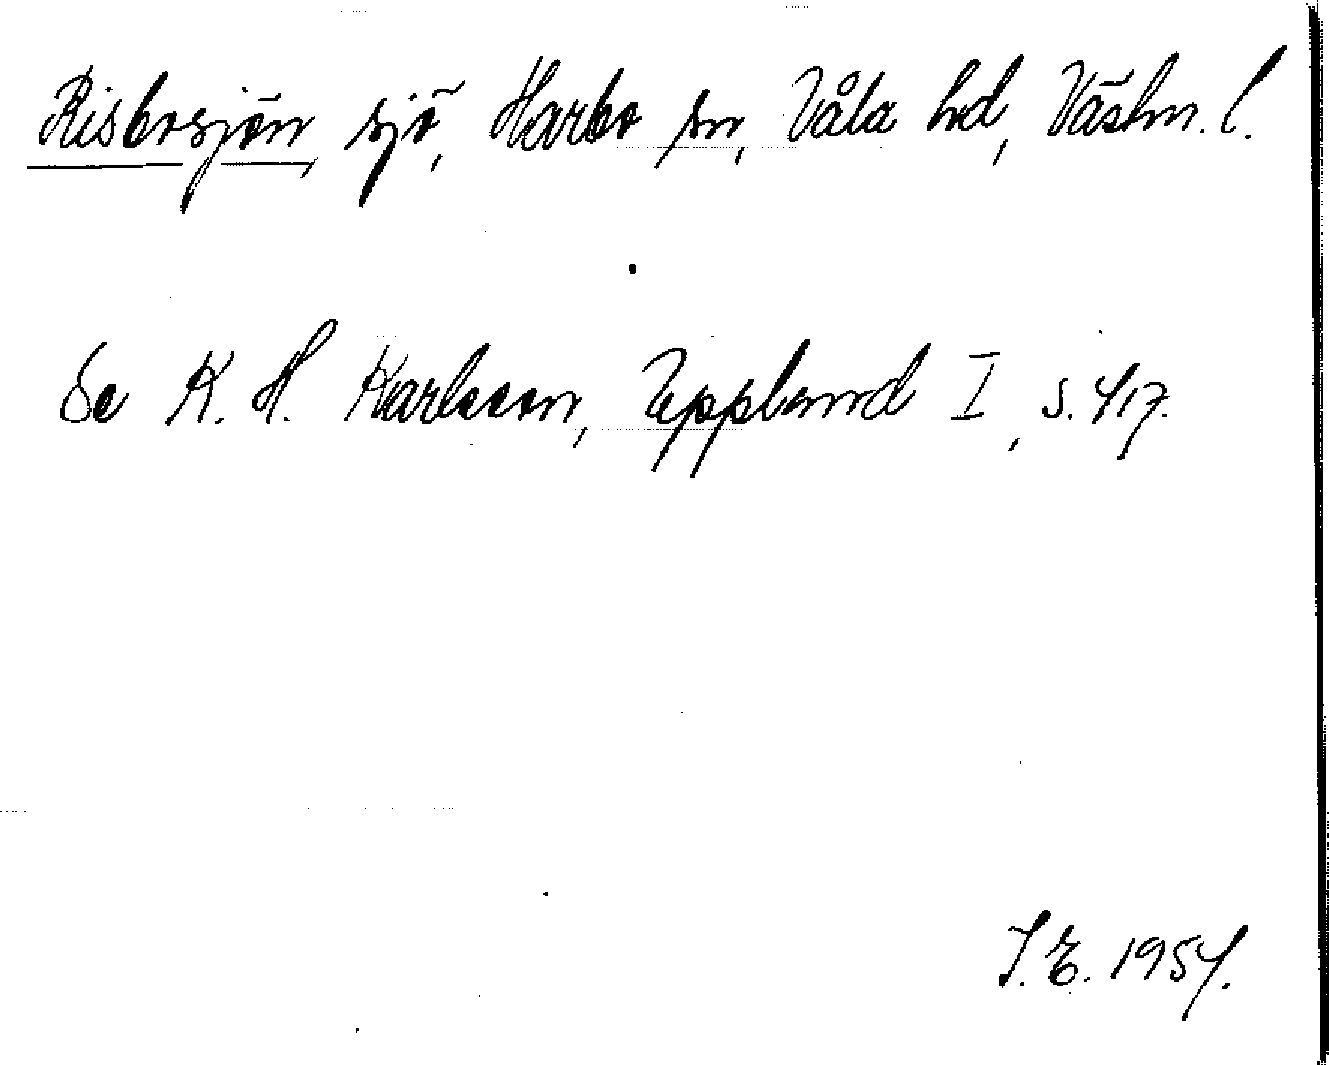 Risbosjön, sjö, Harbo sn, Våla hd, Västm. l.
Se K. H. Karlsson, Uppland I, s. 417.
I. E. 1954.